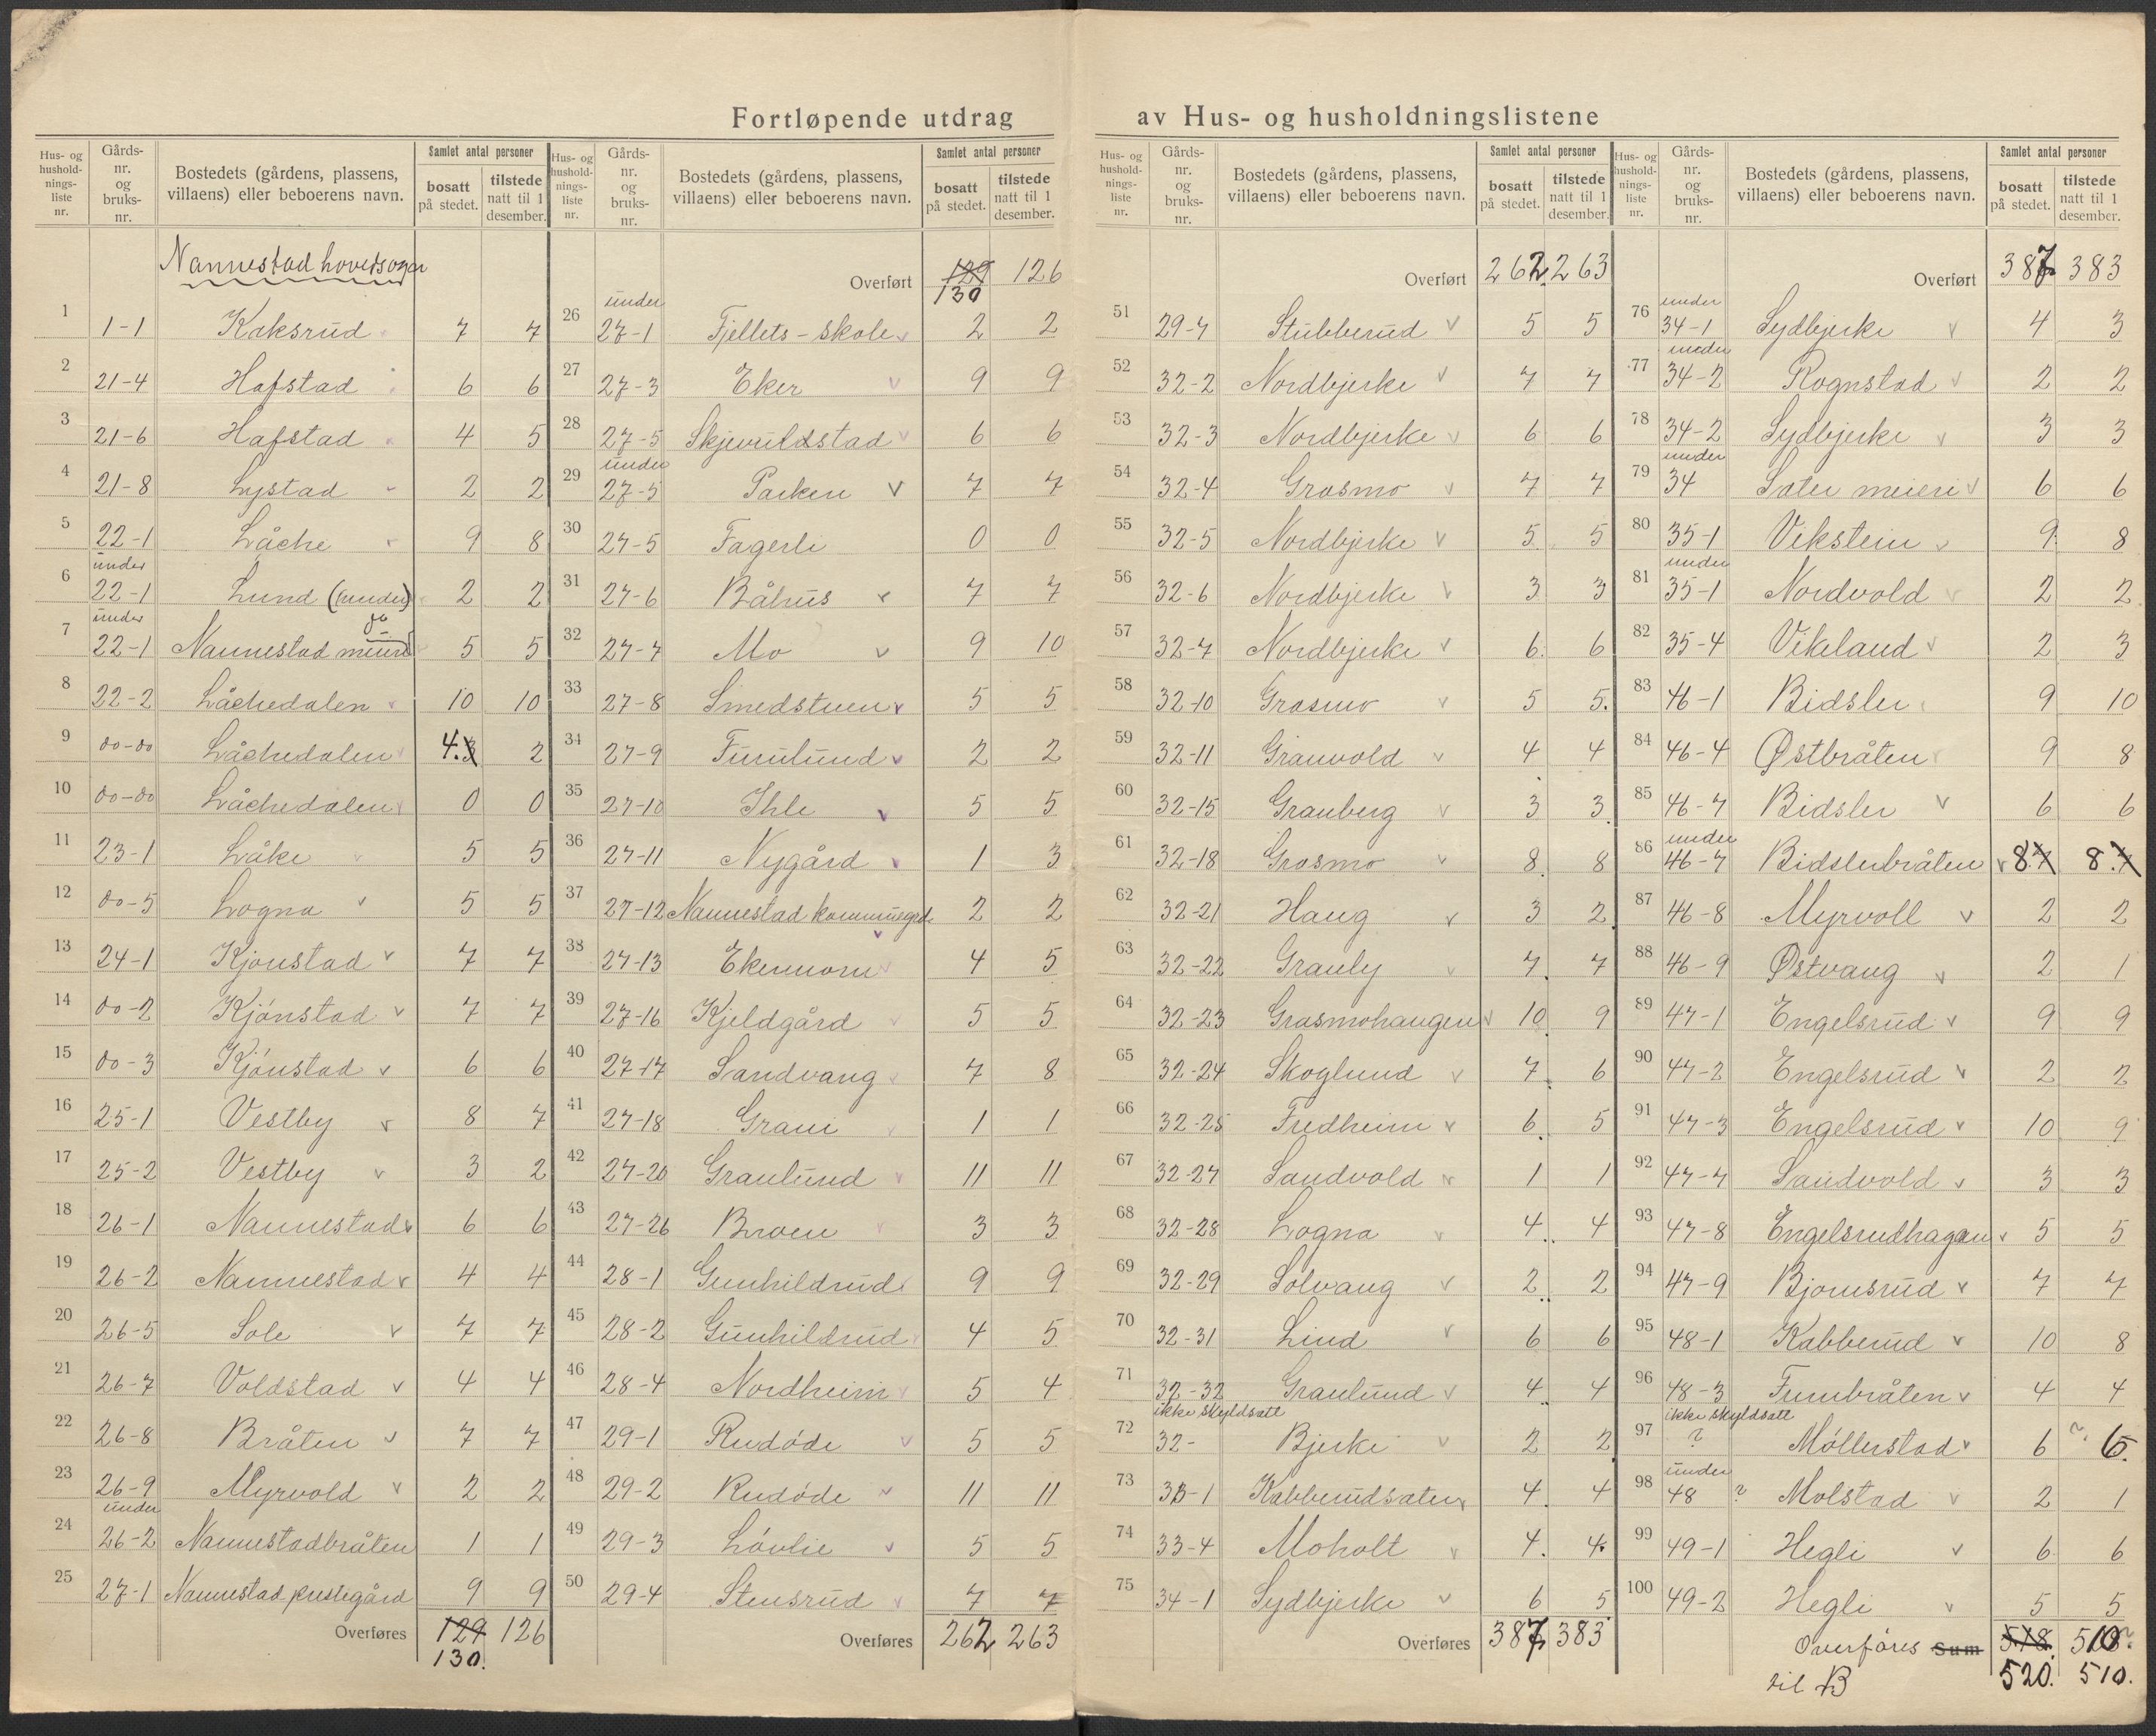 Fortløpende utdrag av Hus- og husholdningslistene
Hus- og husholdnings- liste nr. Gårds- nr. og bruks- nr. Bostedets (gårdens, plassens, villaens) eller beboerens navn. Samlet antal personer bosatt på stedet. tilstede natt til 1 desember.
Nannestad hovedsogn
1 1-1 Kaksrud 7 7
2 21-4 Hafstad 6 6
3 21-6 Hafstad 4 5
4 21-8 Lystad 2 2
5 22-1 Låche 9 8
6 under 22-1 Lund (under) 2 2
7 under 22-1 Nannestad meieri 5 5
8 22-2 Låchedalen 10 10
9 do-do Låchedalen 4. 3 2
10 do-do Låchedalen 0 0
11 23-1 Låke 5 5
12 do-5 Logna 5 5
13 24-1 Kjønstad 7 7
14 do-2 Kjønstad 7 7
15 do-3 Kjønstad 6 6
16 25-1 Vestby 8 7
17 25-2 Vestby 3 2
18 26-1 Nannestad 6 6
19 26-2 Nannestad 4 4
20 26-5 Sole 7 7
21 26-7 Voldstad 4 4
22 26-8 Bråten 7 7
23 26-9 Myrvold 2 2
24 under 26-2 Nannestadbråten 1 1
25 27-1 Nannestad prestegård 9 9
Overføres 129 126
130.
Hus- og husholdnings- liste nr. Gårds- nr. og bruks- nr. Bostedets (gårdens, plassens, villaens) eller beboerens navn. Samlet antal personer bosatt på stedet. tilstede natt til 1 desember.
Overført 129 126
130
26 under 27-1 Fjellets-skole 2 2
27 27-3 Eker 9 9
28 27-5 Skjevuldstad 6 6
29 under 27-5 Parken 7 7
30 27-5 Fagerli 0 0
31 27-6 Båhus 7 7
32 27-7 Mo 9 10
33 27-8 Smedstuen 5 5
34 27-9 Furulund 2 2
35 27-10 Ihle 5 5
36 27-11 Nygård 1 3
37 27-12 Nannestad kommunegrd 2 2
38 27-13 Ekermoen 4 5
39 27-16 Kjeldgård 5 5
40 27-17 Sandvang 7 8
41 27-18 Gran 1 1
42 27-20 Granlund 11 11
43 27-26 Broen 3 3
44 28-1 Gunhildrud 9 9
45 28-2 Gunhildrud 4 5
46 28-4 Nordheim 5 4
47 29-1 Rudøde 5 5
48 29-2 Rudøde 11 11
49 29-3 Løvlie 5 5
50 29-4 Stensrud 7 7
Overføres 262 263
Hus- og husholdnings- liste nr. Gårds- nr. og bruks- nr. Bostedets (gårdens, plassens, villaens) eller beboerens navn. Samlet antal personer bosatt på stedet. tilstede natt til 1 desember.
Overført 262 263
51 29-7 Stubberud 5 5
52 32-2 Nordbjerke 7 7
53 32-3 Nordbjerke 6 6
54 32-4 Grasmo 7 7
55 32-5 Nordbjerke 5 5
56 32-6 Nordbjerke 3 3
57 32-7 Nordbjerke 6 6
58 32-10 Grasmo 5 5
59 32-11 Granvold 4 4
60 32-15 Granberg 3 3
61 32-18 Grasmo 8 8
62 32-21 Haug 3 2
63 32-22 Granly 7 7
64 32-23 Grasmohaugen 10 9
65 32-24 Skoglund 7 6
66 32-25 Fredheim 6 5
67 32-27 Sandvold 1 1
68 32-28 Logna 4 4
69 32-29 Solvang 2 2
70 32-31 Lind 6 6
71 32-32 Granlund 4 4
72 ikke skyldsatt 32- Bjerke 2 2
73 33-1 Kabberudsæter 4 4
74 33-4 Moholt 4 4
75 34-1 Sydbjerke 6 5
Overføres 387 383
Hus- og husholdnings- liste nr. Gårds- nr. og bruks- nr. Bostedets (gårdens, plassens, villaens) eller beboerens navn. Samlet antal personer bosatt på stedet. tilstede natt til 1 desember.
Overført 387 383
76 under 34-1 Sydbjerke 4 3
77 under 34-2 Rognstad 2 2
78 34-2 Sydbjerke 3 3
79 under 34 Sater meieri 6 6
80 35-1 Vikstein 9 8
81 under 35-1 Nordvold 2 2
82 35-4 Vikeland 2 3
83 46-1 Bidsler 9 10
84 46-4 Østbråten 9 8
85 46-7 Bidsler 6 6
86 under 46-7 Bidslerbråten 8. 7 8. 7
87 46-8 Myrvoll 2 2
88 46-9 Østvang 2 1
89 47-1 Engelsrud 9 9
90 47-2 Engelsrud 2 2
91 47-3 Engelsrud 10 9
92 47-7 Sandvold 3 3
93 47-8 Engelsrudhagan 5 5
94 47-9 Bjørnsrud 7 7
95 48-1 Kabberud 10 8
96 48-3 Furubråten 4 4
97 ikke skyldsatt ? Møllerstad 6 ? 6.
98 under 48 ? Molstad 2 1
99 49-1 Hegli 6 6
100 49-2 Hegli 5 5
Overføres Sum 518. 510?
til B 520. 510.